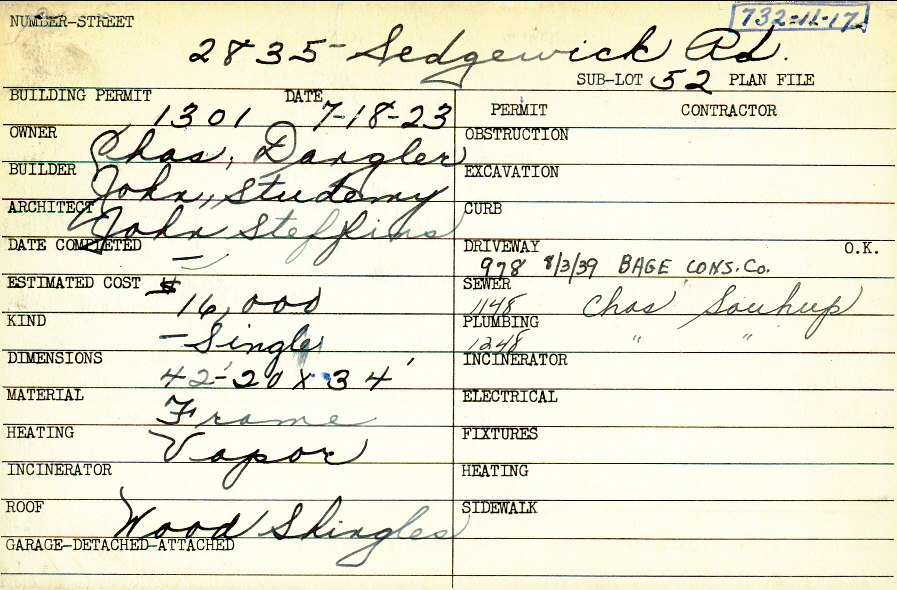 NUMBER-STREET
732-11-17
2835 Sedgewick Rd.
SUB-LOT 52 PLAN FILE
BUILDING PERMIT 1301 DATE 7-18-23
OWNER Chas. Dangler
BUILDER John Studemy
ARCHITECT John Steffins
DATE COMPLETED —
ESTIMATED COST $16,000
KIND - Single
DIMENSIONS 42'-20 x 34'
MATERIAL Frame
HEATING Vapor
INCINERATOR
ROOF Wood Shingles
GARAGE-DETACHED-ATTACHED
PERMIT CONTRACTOR
OBSTRUCTION
EXCAVATION
CURB
DRIVEWAY O.K.
978 8/3/39 BAGE CONS. Co.
SEWER
1148 Chas Souhup
PLUMBING
1248 " "
INCINERATOR
ELECTRICAL
FIXTURES
HEATING
SIDEWALK